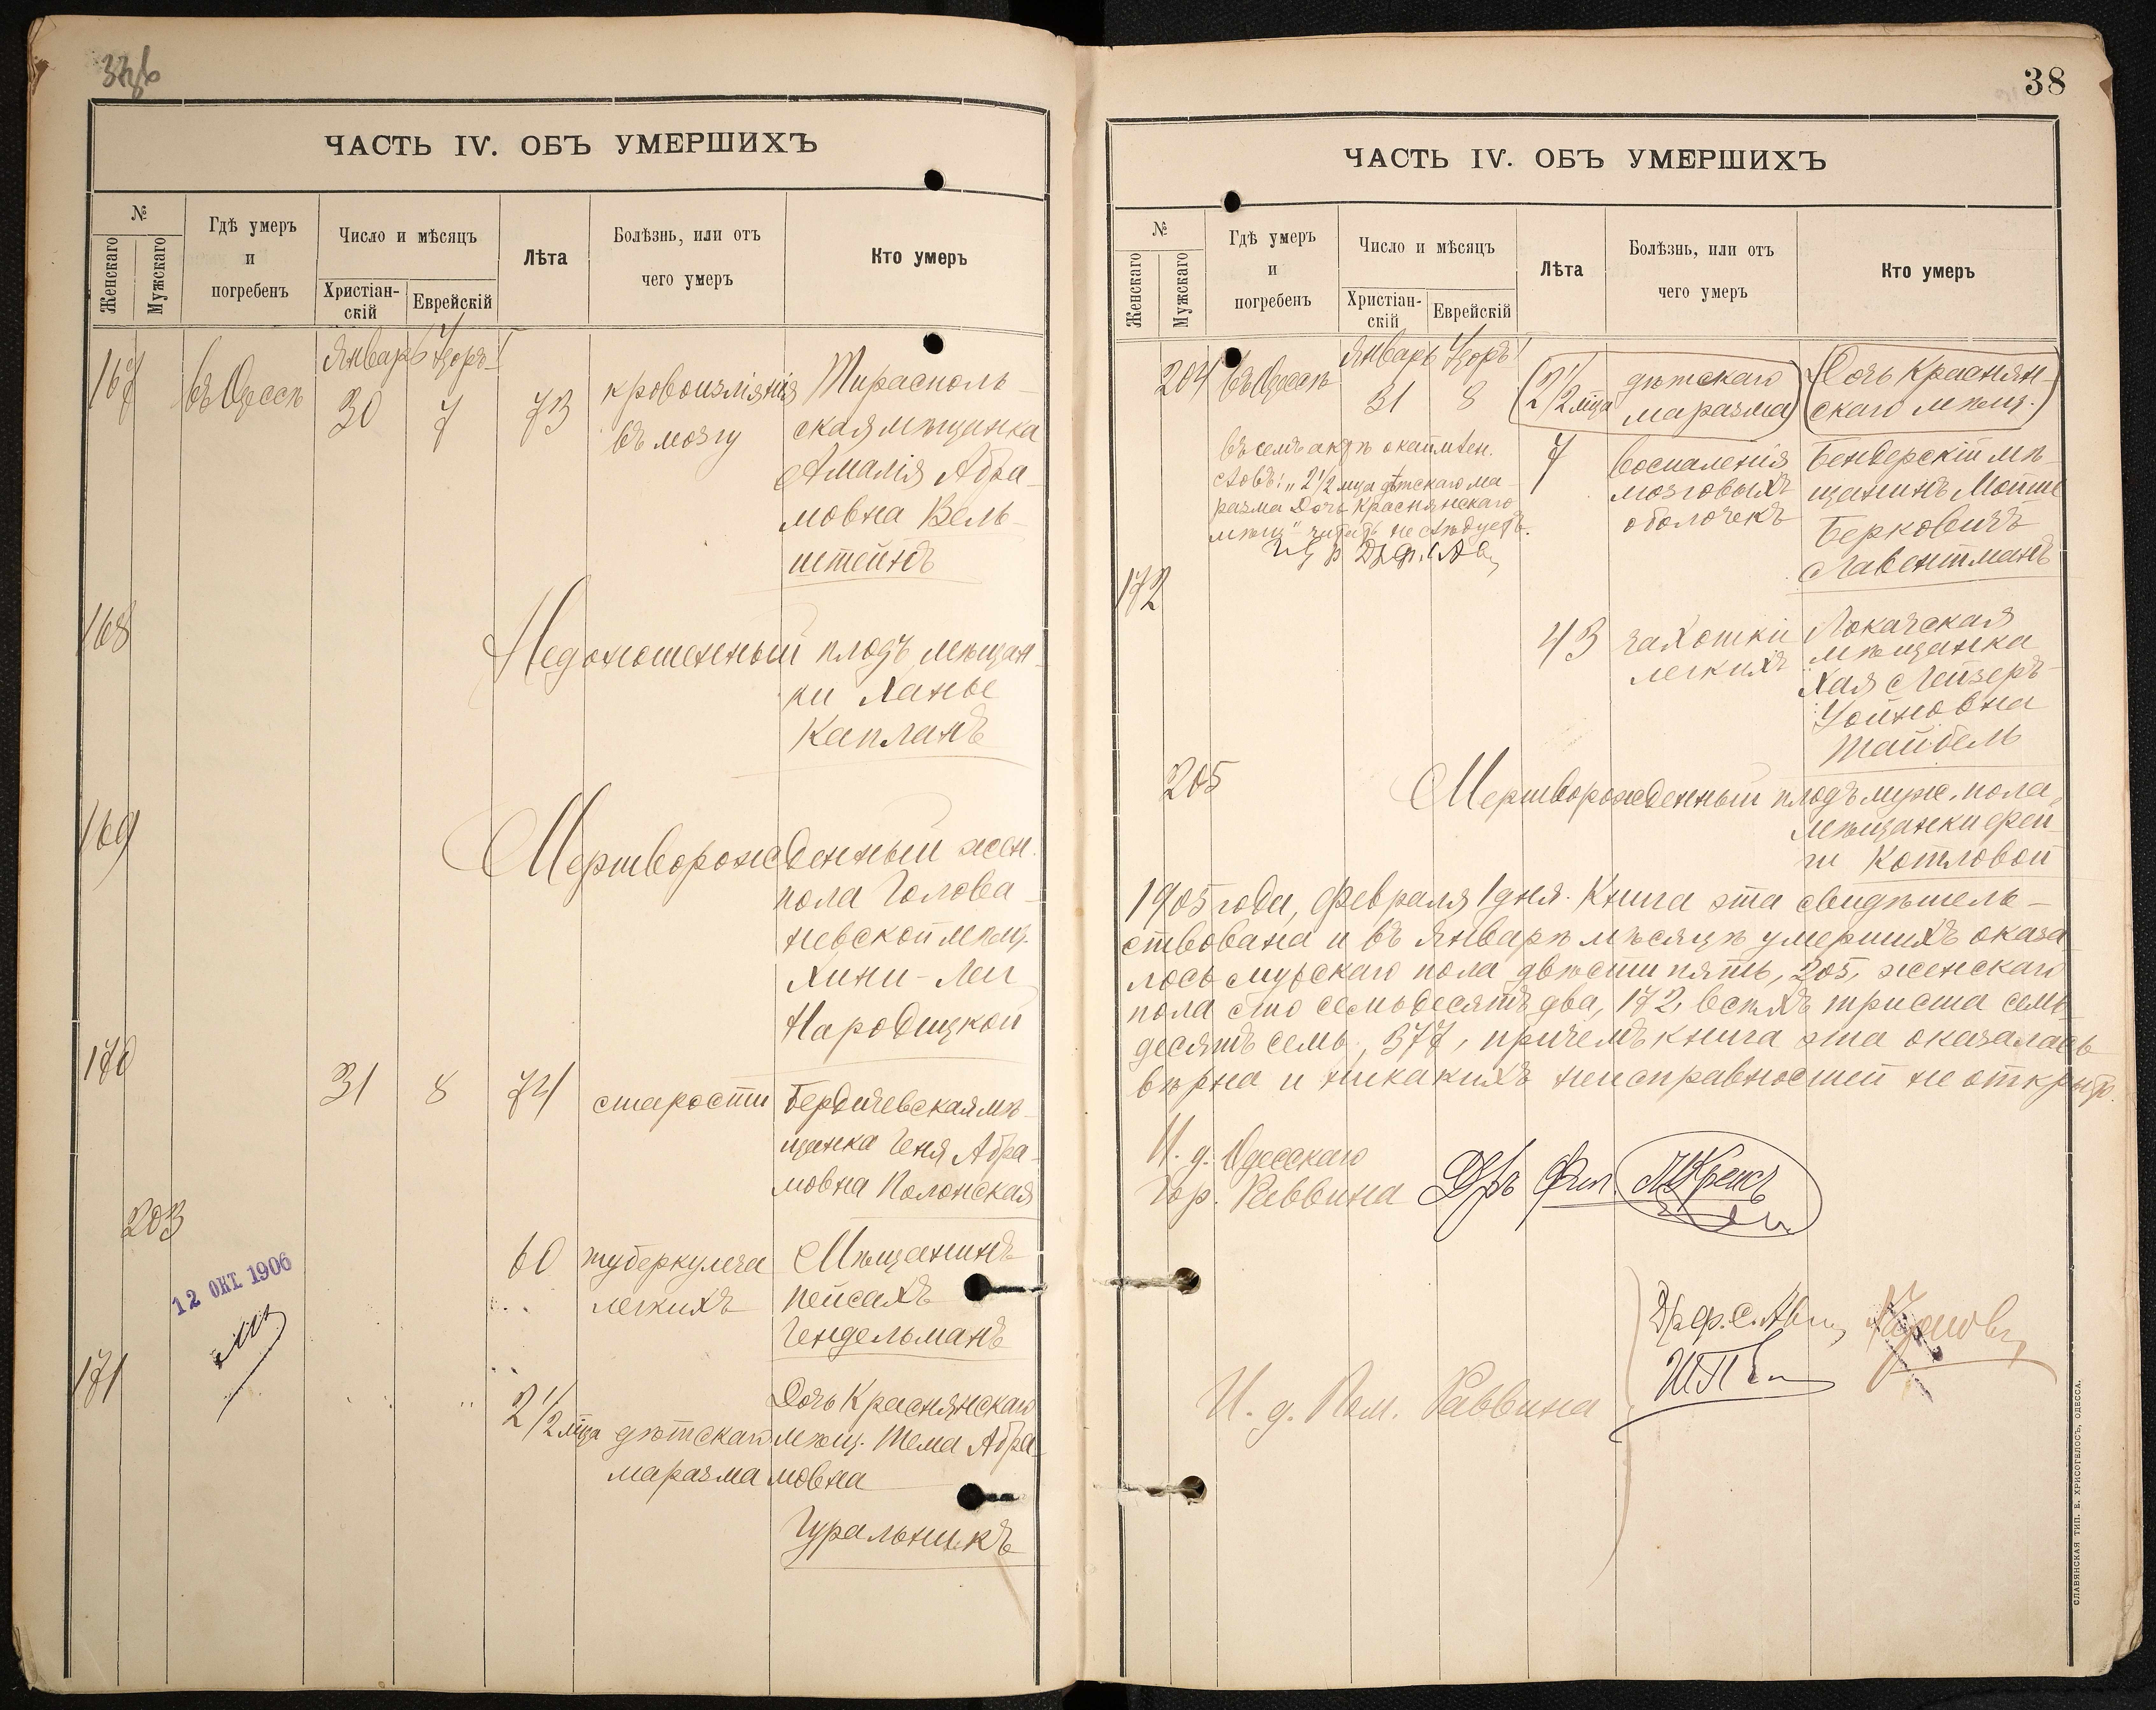 ЧАСТЬ IV. ОБЪ УМЕРШИХЪ
№
Женскаго
Мужскаго
Гдѣ умеръ
и
погребенъ
Число и мѣсяцъ
Христіан-
скій
Еврейскій
Лѣта
Болѣзнь, или отъ
чего умеръ
Кто умеръ
Январь
167
въ Одессѣ
30
7
73
кровоизліянія
въ мозгу
Тирасполь-
ская мѣщанка
Амалія Абра-
мовна Вель-
штейнъ
168
Недоношенный плодъ мѣщан-
ки Ханье
Капланъ
169
Мертворожденный жен.
пола Голова-
невской мѣщ.
Хини-Леи
Народицкой
170
31
8
74
старости
Бердичевская мѣ-
щанка Геня Абра-
мовна Полонская
203
60
туберкулеза
легкихъ
Мѣщанинъ
Пейсахъ
Гендельманъ
12 ОКТ 1906
171
2 1/2 мца
дѣтскаго
маразма
Дочь Краснянскаго
мѣщ. Тема Абра-
мовна
Гуральникъ
38
ЧАСТЬ IV. ОБЪ УМЕРШИХЪ
№
Женскаго
Мужскаго
Гдѣ умеръ
и
погребенъ
Число и мѣсяцъ
Христіан-
скій
Еврейскій
Лѣта
Болѣзнь, или отъ
чего умеръ
Кто умеръ
Январь
204
въ Одессѣ
31
8
(2 1/2 мца
дѣтскаго
маразма)
(Дочь Краснян-
скаго мѣщ.)
въ семъ актѣ
словъ: „2 1/2 мца дѣтскаго ма-
разма Дочь Краснянскаго
мѣщ" читать не слѣдуетъ.
7
воспаленія
мозговыхъ
оболочекъ
Бендерскій мѣ-
щанинъ Мошке
Берковичъ
Лавентманъ
172
43
чахотки
легкихъ
Локачская
мѣщанка
Хая Лейзеръ-
Уойновна
Тайбель
205
Мертворожденный плодъ муж. пола,
мѣщанки Фей-
ги Котловой
1905 года, Февраля 1 дня. Книга эта свидѣтель-
ствована и въ Январѣ мѣсяцѣ умершихъ оказа-
лось мужскаго пола двѣсти пять, 205, женскаго
пола сто семьдесятъ два, 172, всѣхъ триста семь-
десятъ семь, 377, причемъ книга эта оказалась
вѣрна и никакихъ неисправностей не открыто.
И. д. Одесскаго
Гор. Раввина
Д-ръ Фил. Крепсъ
И. д. Пом. Раввина
СЛАВЯНСКАЯ ТИП. Е. ХРИСОГЕЛОСЪ, ОДЕССА.